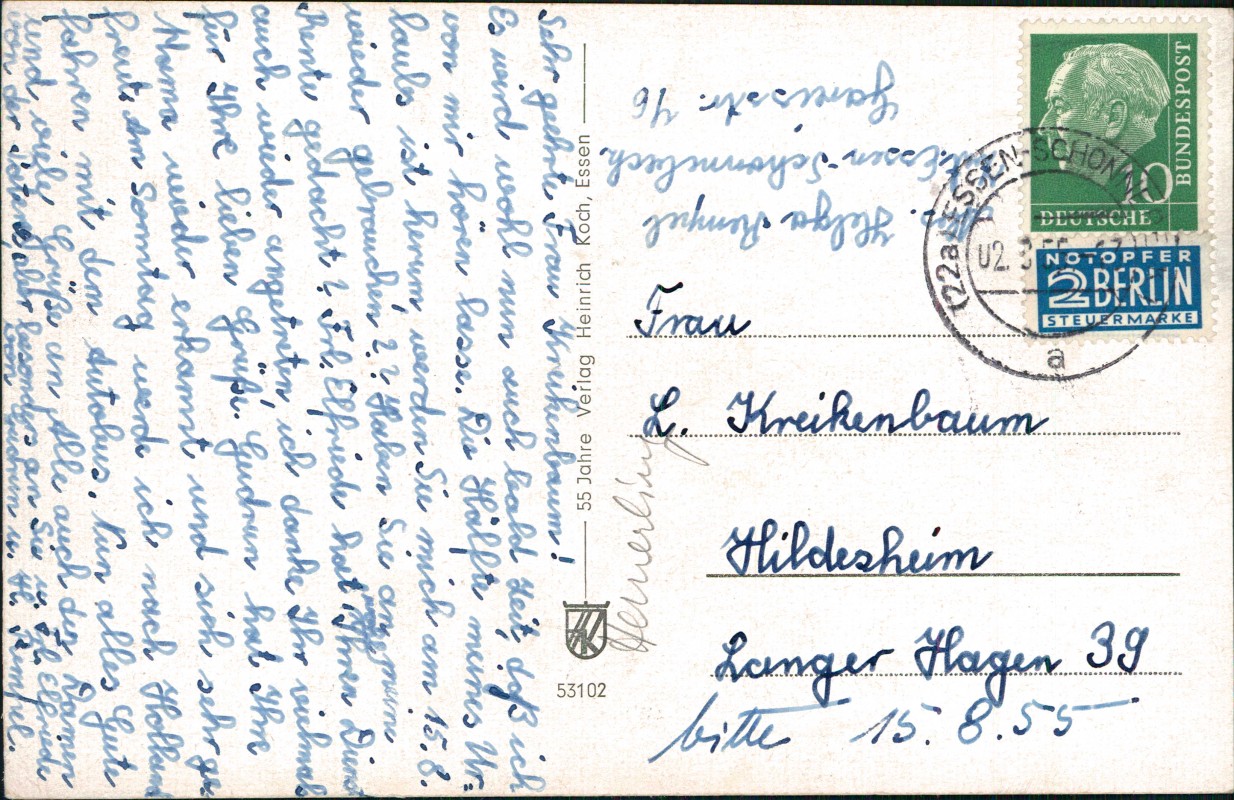 Sehr geehrte Frau Kreikenbaum!
Es wird wohl nun auch bald Zeit, daß ich
von mir hören lasse. Die Hälfte meines Ur-
laubs ist herum werden Sie mich am 15.8.
wieder gebrauchen?? Haben Sie an meine
Rente gedacht? Frl. Elfriede hat Ihren Dienst
auch wieder angetreten, ich danke Ihr vielmals
für Ihre lieben Grüße. Gudrun hat Ihre
Mama wieder erkannt und sich sehr ge-
freut. Am Sonntag werde ich nach Holland
fahren mit dem Autobus. Nun alles Gute
und viele Grüße an Alle auch den Damen
von der besonders an Sie u. Frl. Elfriede
von u. H. Rempel.
55 Jahre Verlag Heinrich Koch, Essen
HK
53102
Abs. Helga Rempel
Essen-Schonnebeck
Gareisstr. 76
DEUTSCHE
BUNDESPOST
10
NOTOPFER
2 BERLIN
STEUERMARKE
(22a) ESSEN-SCHONNEBECK
02. 8. 55
a
Frau
L. Kreikenbaum
Hildesheim
Langer Hagen 39
bitte 15. 8. 55